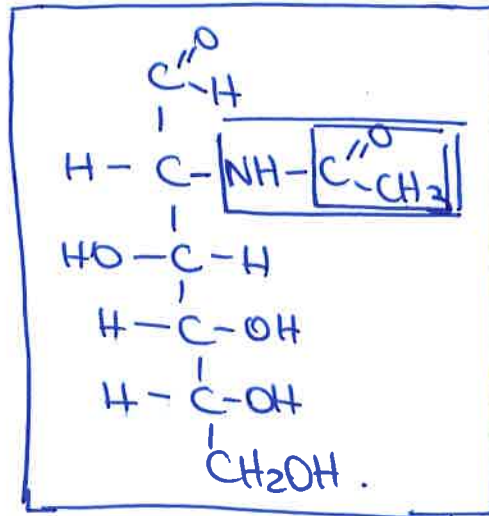 O
C H
H - C - NH - C O CH3
HO - C - H
H - C - OH
H - C - OH
CH2OH .